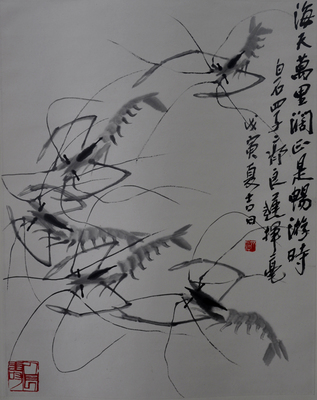 海天萬里闊正是暢游時
白石四子齊良遲揮毫
戊寅夏吉日